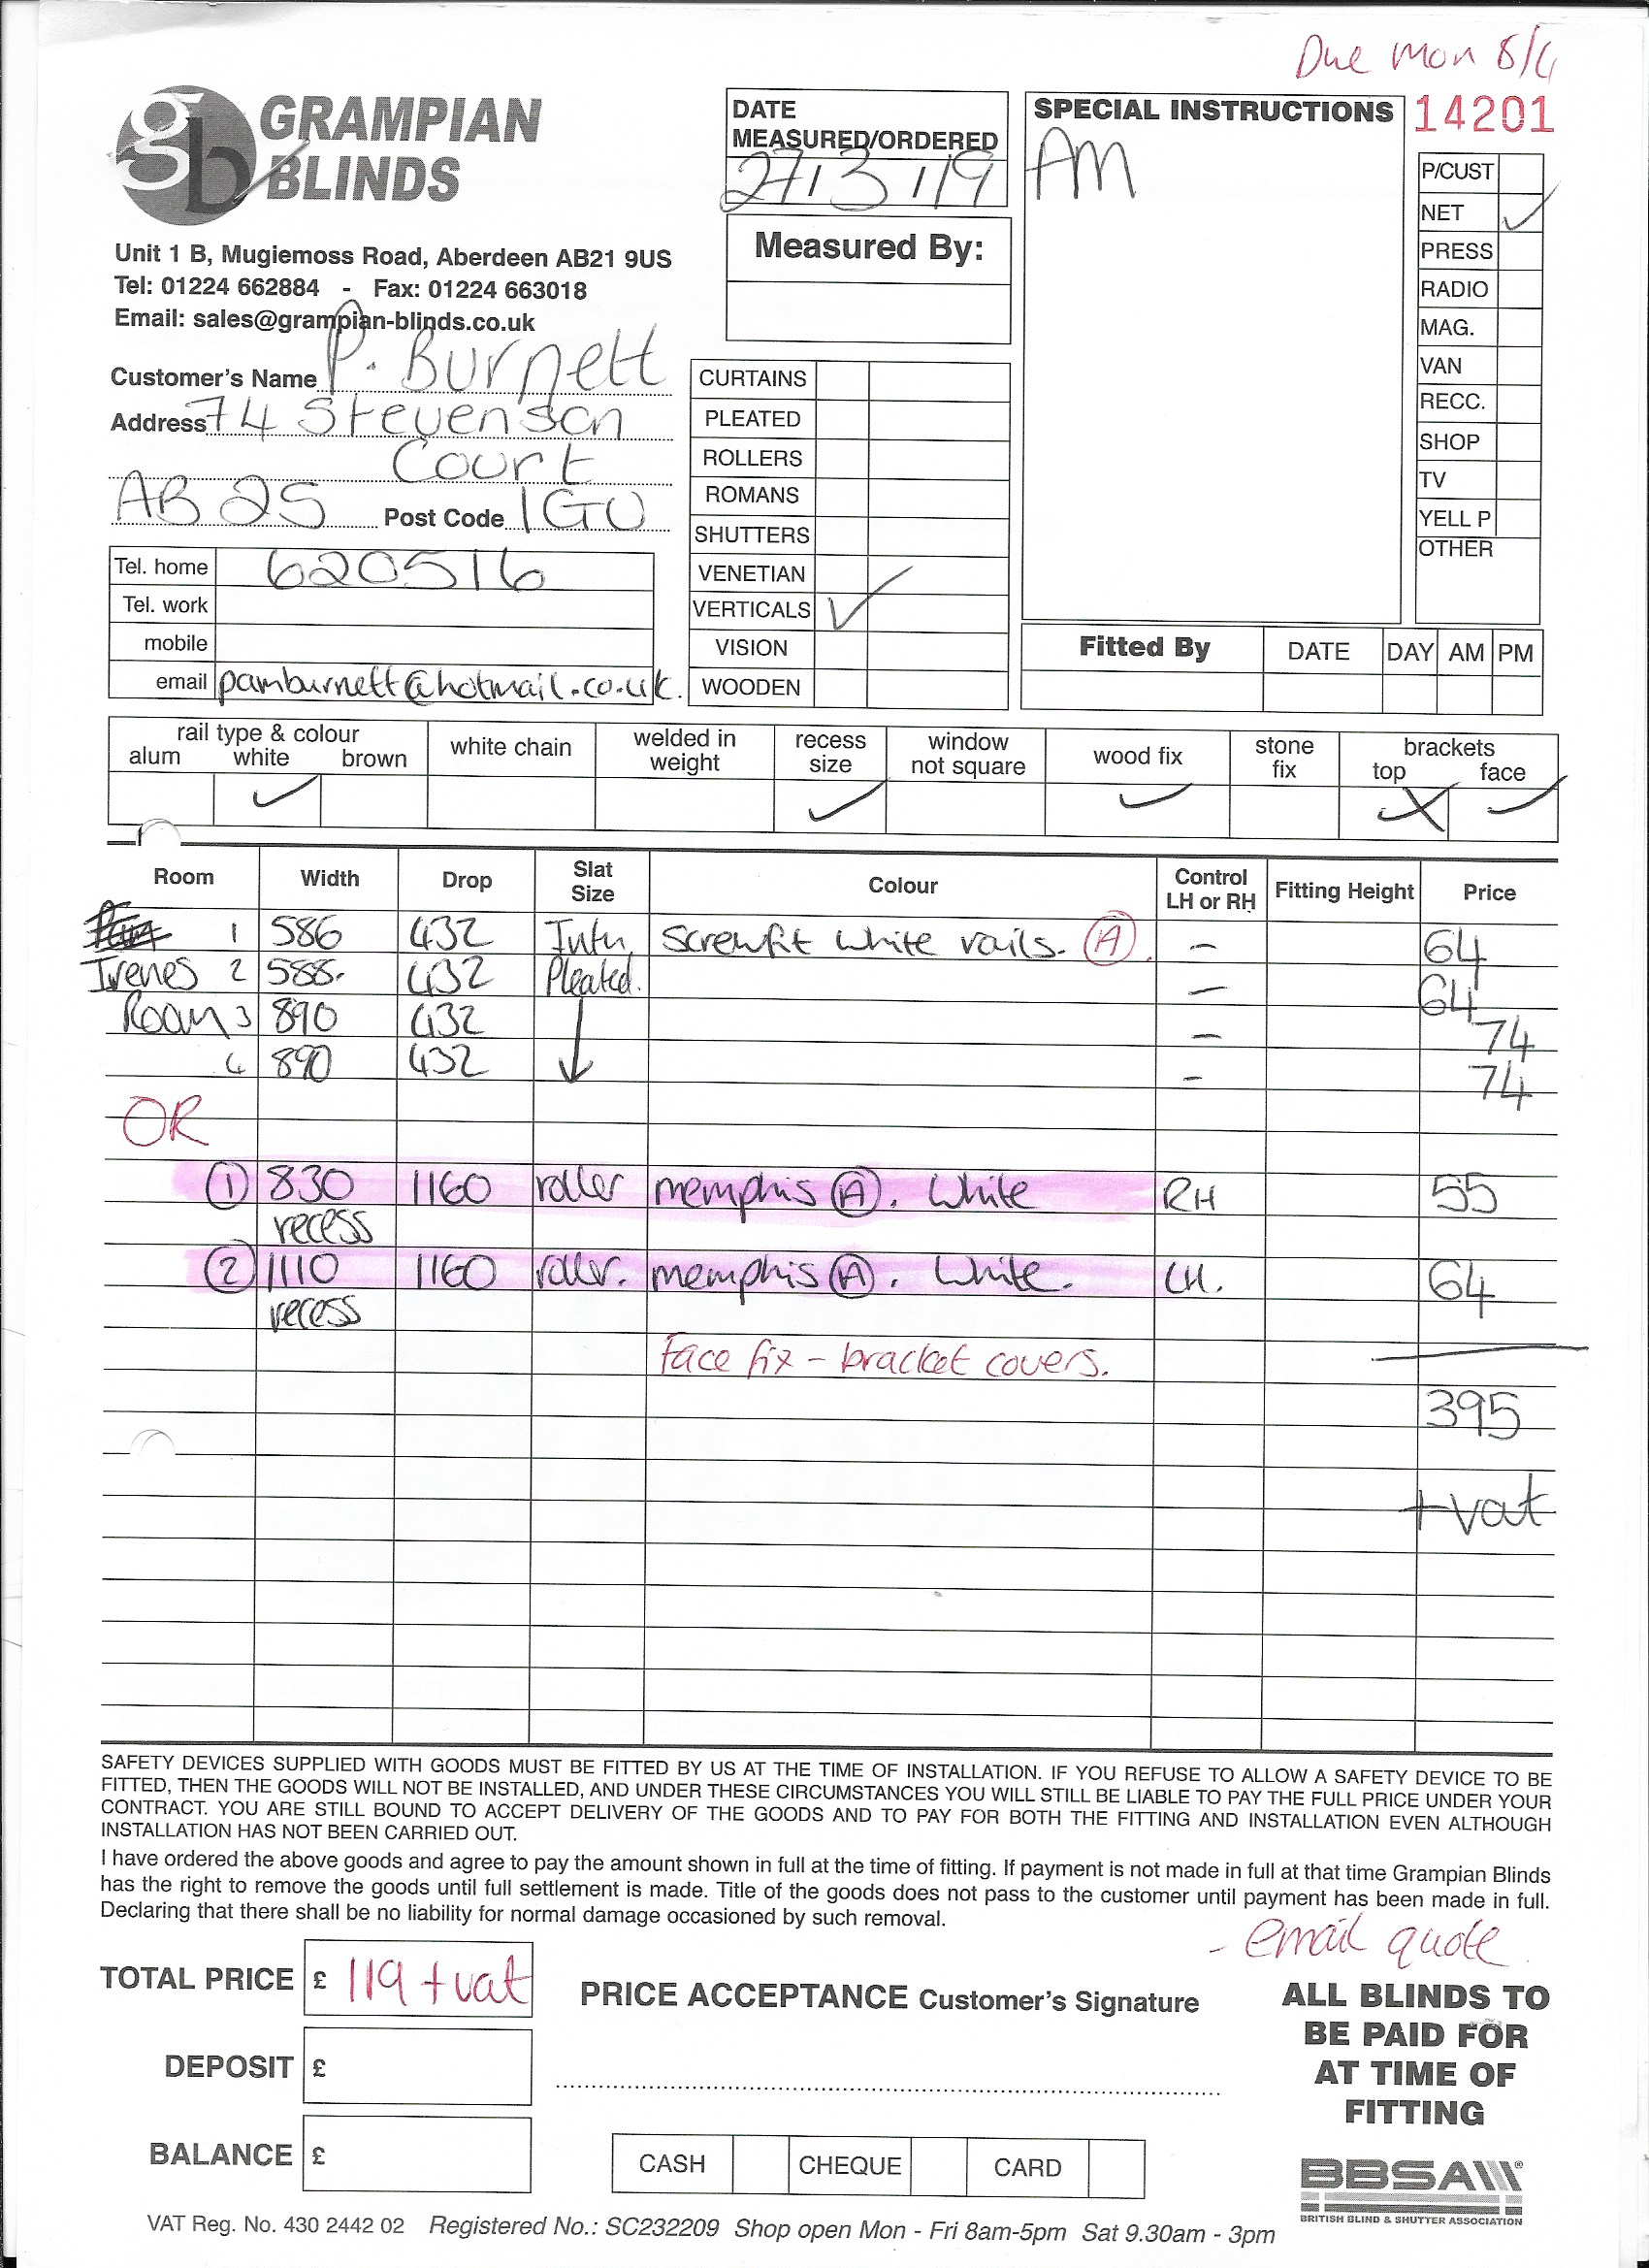 Due Mon 8/4
gb GRAMPIAN BLINDS
Unit 1 B, Mugiemoss Road, Aberdeen AB21 9US
Tel: 01224 662884 - Fax: 01224 663018
Email: sales@grampian-blinds.co.uk
Customer's Name P. Burnett
Address 74 Stevenson
Court
AB25 Post Code 1GU
Tel. home 620516
Tel. work
mobile
email pamburnett@hotmail.co.uk.
DATE
MEASURED/ORDERED
27/3/19
Measured By:
CURTAINS
PLEATED
ROLLERS
ROMANS
SHUTTERS
VENETIAN
VERTICALS ✓
VISION
WOODEN
SPECIAL INSTRUCTIONS
AM
14201
P/CUST
NET ✓
PRESS
RADIO
MAG.
VAN
RECC.
SHOP
TV
YELL P
OTHER
Fitted By DATE DAY AM PM
rail type & colour
alum white brown
white chain
welded in weight
recess size
window not square
wood fix
stone fix
brackets
top face
✓ ✓ ✓ X ✓
Room Width Drop Slat Size Colour Control LH or RH Fitting Height Price
1 586 432 Intu Screwfit white rails. A - 64
Irenes 2 588. 432 Pleated. - 64
Room 3 890 432 - 74
4 890 432 - 74
OR
1 830 1160 roller memphis A. White RH 55
recess
2 1110 1160 roller. memphis A. White. LH. 64
recess
Face fix - bracket covers.
395
+ vat
SAFETY DEVICES SUPPLIED WITH GOODS MUST BE FITTED BY US AT THE TIME OF INSTALLATION. IF YOU REFUSE TO ALLOW A SAFETY DEVICE TO BE
FITTED, THEN THE GOODS WILL NOT BE INSTALLED, AND UNDER THESE CIRCUMSTANCES YOU WILL STILL BE LIABLE TO PAY THE FULL PRICE UNDER YOUR
CONTRACT. YOU ARE STILL BOUND TO ACCEPT DELIVERY OF THE GOODS AND TO PAY FOR BOTH THE FITTING AND INSTALLATION EVEN ALTHOUGH
INSTALLATION HAS NOT BEEN CARRIED OUT.
I have ordered the above goods and agree to pay the amount shown in full at the time of fitting. If payment is not made in full at that time Grampian Blinds
has the right to remove the goods until full settlement is made. Title of the goods does not pass to the customer until payment has been made in full.
Declaring that there shall be no liability for normal damage occasioned by such removal.
- email quote
TOTAL PRICE £ 119 + vat
DEPOSIT £
BALANCE £
PRICE ACCEPTANCE Customer's Signature
CASH CHEQUE CARD
ALL BLINDS TO
BE PAID FOR
AT TIME OF
FITTING
BBSA
BRITISH BLIND & SHUTTER ASSOCIATION
VAT Reg. No. 430 2442 02 Registered No.: SC232209 Shop open Mon - Fri 8am-5pm Sat 9.30am - 3pm